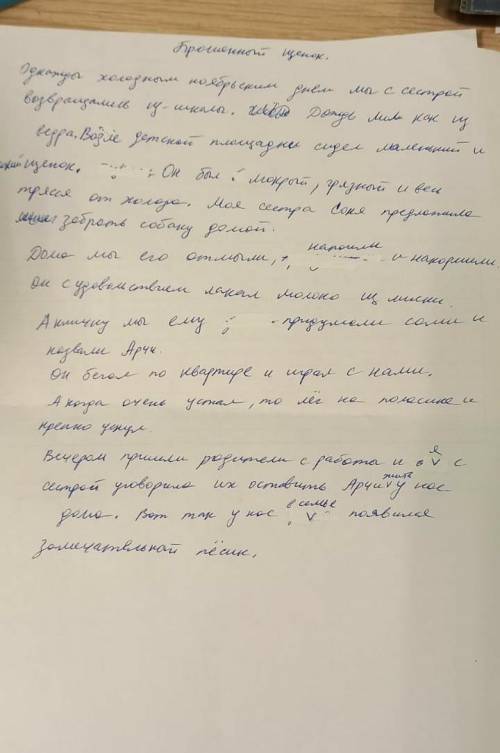 Брошенный щенок.
Однажды холодным ноябрьским днём мы с сестрой
возвращались из школы. Дождь лил как из
ведра. Возле детской площадки сидел маленький и
щенок. Он был мокрый, грязный и весь
трясся от холода. Моя сестра Соня предложила
забрать собаку домой.
Дома мы его отмыли, напоили и накормили.
Он с удовольствием лакал молоко из миски.
А кличку мы ему придумали сами и
назвали Арчи.
Он бегал по квартире и играл с нами.
А когда очень устал, то лёг на полосика и
крепко уснул.
Вечером пришли родители с работы и я с
сестрой уговорила их оставить Арчи жить у нас
дома. Вот так у нас в семье появился
замечательной пёсик.